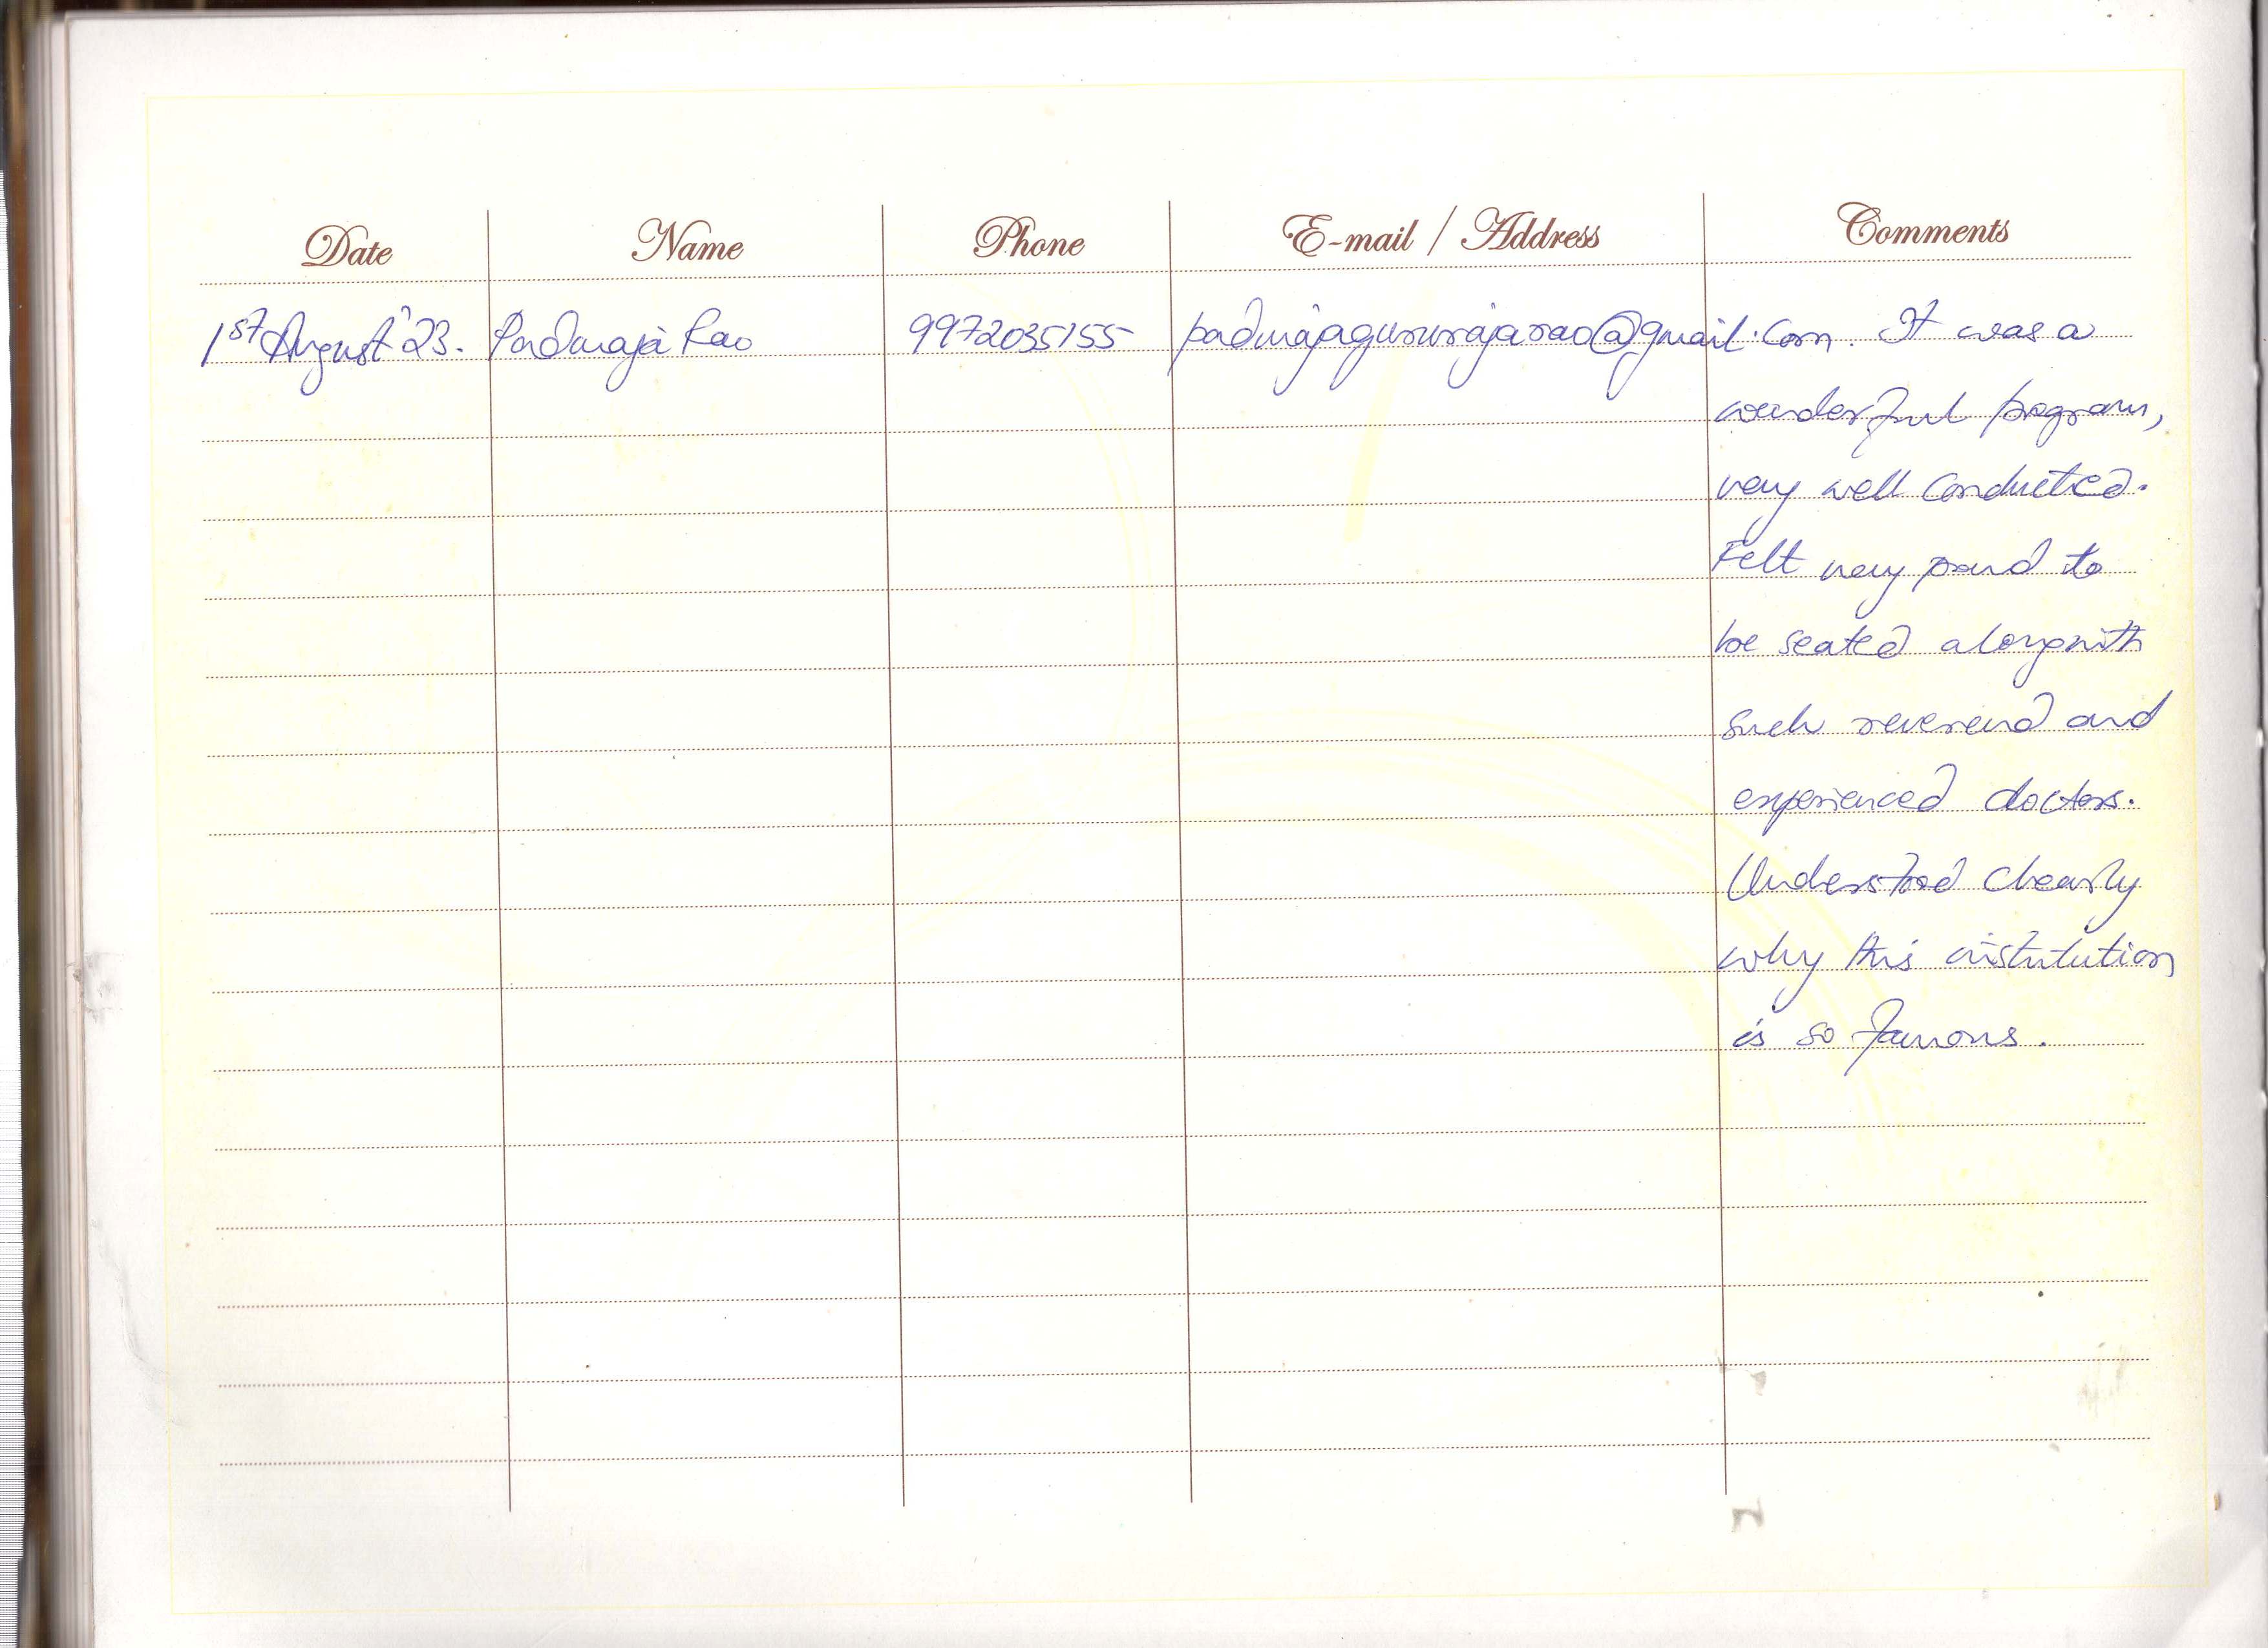 Date Name Phone E-mail / Address Comments
1st August '23. Padmaja Rao 9972035155 padmajagururajarao@gmail.com. It was a
wonderful program,
very well conducted.
Felt very proud to
be seated alongwith
such reverend and
experienced doctors.
Understood clearly
why this institution
is so famous.